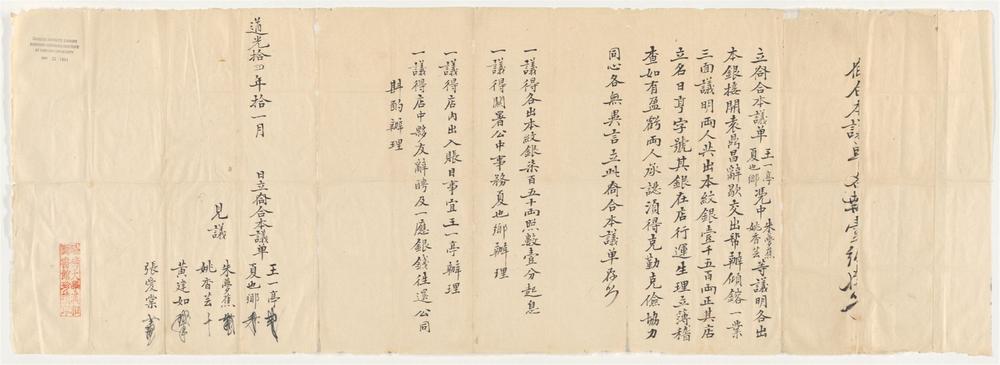 立夥合本議单王一亭夏也鄉憑中朱夢蕉姚香芸等議明各出
本銀接開袁鼎昌辭歇交出幫辦傾鎔一業
三面議明两人共出本紋銀壹千五百两正其店
立名曰亨字號其銀在店行運生理立薄稽
查如有盈虧两人承認須得克勤克儉協力
同心各無異言立此夥合本議单存
一議得各出本紋銀柒百五十两照數壹分起息
一議得關署公中事務夏也鄉辦理
一議得店內出入賬目事宜王一亭辦理
一議得店中夥友辭聘及一應銀錢往還公同
斟酌辦理
道光拾四年拾一月 日立夥合本議单 王一亭
夏也鄉
見議 朱夢蕉
姚香芸 十
黄建如
張愛棠